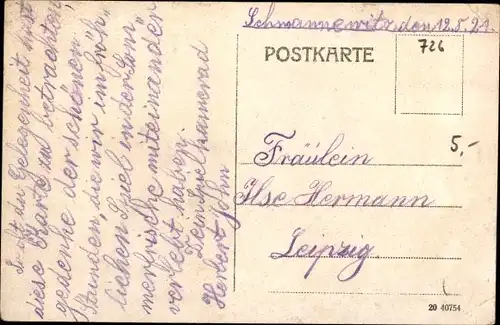 Schmannewitz, den 12.5.21.
POSTKARTE
726
5,-
Fräulein
Ilse Hermann
Leipzig.
So oft du Gelegenheit hast
diese Karte zu betrachten,
gedenke der schönen
Stunden, die wir im fröh-
lichen Spiel in der Som-
merfrische miteinander
verlebt haben.
Dein Spielkamerad
Herbert John
20 40754